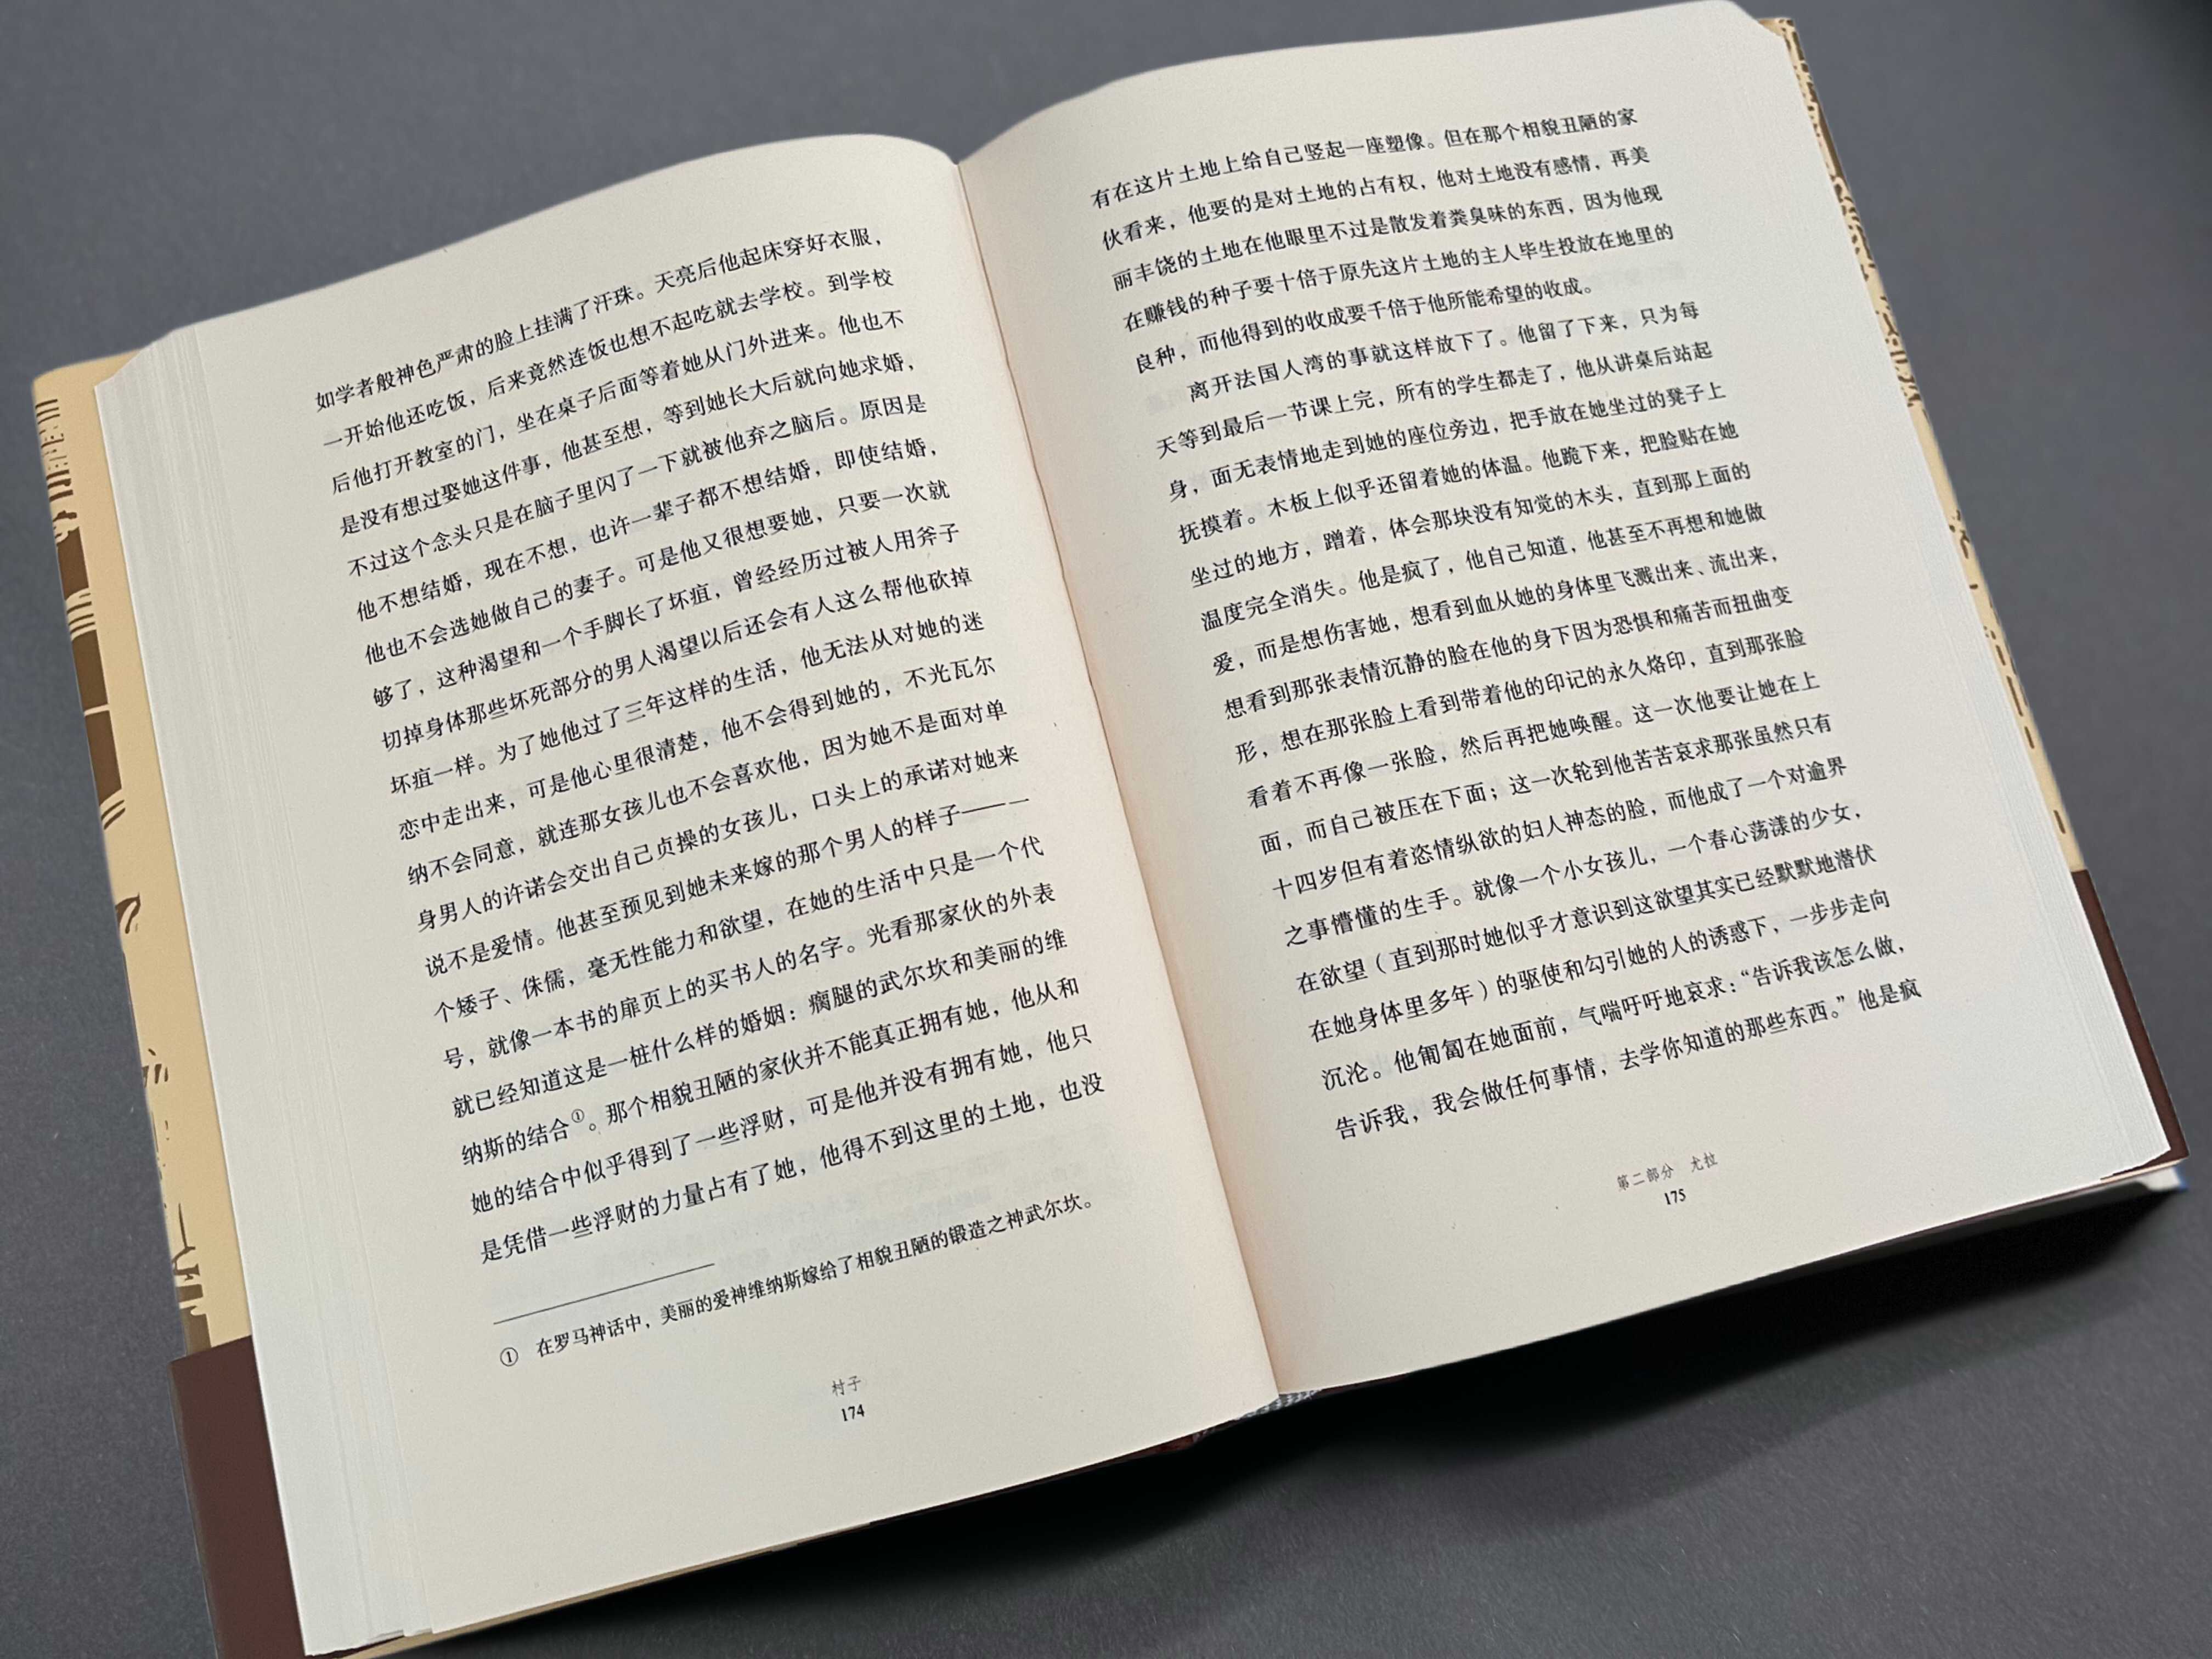 如学者般神色严肃的脸上挂满了汗珠。天亮后他起床穿好衣服，
一开始他还吃饭，后来竟然连饭也想不起吃就去学校。到学校
后他打开教室的门，坐在桌子后面等着她从门外进来。他也不
是没有想过娶她这件事，他甚至想，等到她长大后就向她求婚，
不过这个念头只是在脑子里闪了一下就被他弃之脑后。原因是
他不想结婚，现在不想，也许一辈子都不想结婚，即使结婚，
他也不会选她做自己的妻子。可是他又很想要她，只要一次就
够了，这种渴望和一个手脚长了坏疽，曾经经历过被人用斧子
切掉身体那些坏死部分的男人渴望以后还会有人这么帮他砍掉
坏疽一样。为了她他过了三年这样的生活，他无法从对她的迷
恋中走出来，可是他心里很清楚，他不会得到她的，不光瓦尔
纳不会同意，就连那女孩儿也不会喜欢他，因为她不是面对单
身男人的许诺会交出自己贞操的女孩儿，口头上的承诺对她来
说不是爱情。他甚至预见到她未来嫁的那个男人的样子——一
个矮子、侏儒，毫无性能力和欲望，在她的生活中只是一个代
号，就像一本书的扉页上的买书人的名字。光看那家伙的外表
就已经知道这是一桩什么样的婚姻：瘸腿的武尔坎和美丽的维
纳斯的结合①。那个相貌丑陋的家伙并不能真正拥有她，他从和
她的结合中似乎得到了一些浮财，可是他并没有拥有她，他只
是凭借一些浮财的力量占有了她，他得不到这里的土地，也没
① 在罗马神话中，美丽的爱神维纳斯嫁给了相貌丑陋的锻造之神武尔坎。
村子
174
有在这片土地上给自己竖起一座塑像。但在那个相貌丑陋的家
伙看来，他要的是对土地的占有权，他对土地没有感情，再美
丽丰饶的土地在他眼里不过是散发着粪臭味的东西，因为他现
在赚钱的种子要十倍于原先这片土地的主人毕生投放在地里的
良种，而他得到的收成要千倍于他所能希望的收成。
离开法国人湾的事就这样放下了。他留了下来，只为每
天等到最后一节课上完，所有的学生都走了，他从讲桌后站起
身，面无表情地走到她的座位旁边，把手放在她坐过的凳子上
抚摸着。木板上似乎还留着她的体温。他跪下来，把脸贴在她
坐过的地方，蹭着，体会那块没有知觉的木头，直到那上面的
温度完全消失。他是疯了，他自己知道，他甚至不再想和她做
爱，而是想伤害她，想看到血从她的身体里飞溅出来、流出来，
想看到那张表情沉静的脸在他的身下因为恐惧和痛苦而扭曲变
形，想在那张脸上看到带着他的印记的永久烙印，直到那张脸
看着不再像一张脸，然后再把她唤醒。这一次他要让她在上
面，而自己被压在下面；这一次轮到他苦苦哀求那张虽然只有
十四岁但有着恣情纵欲的妇人神态的脸，而他成了一个对逾界
之事懵懂的生手。就像一个小女孩儿，一个春心荡漾的少女，
在欲望（直到那时她似乎才意识到这欲望其实已经默默地潜伏
在她身体里多年）的驱使和勾引她的人的诱惑下，一步步走向
沉沦。他匍匐在她面前，气喘吁吁地哀求：“告诉我该怎么做，
告诉我，我会做任何事情，去学你知道的那些东西。”他是疯
第二部分 尤拉
175